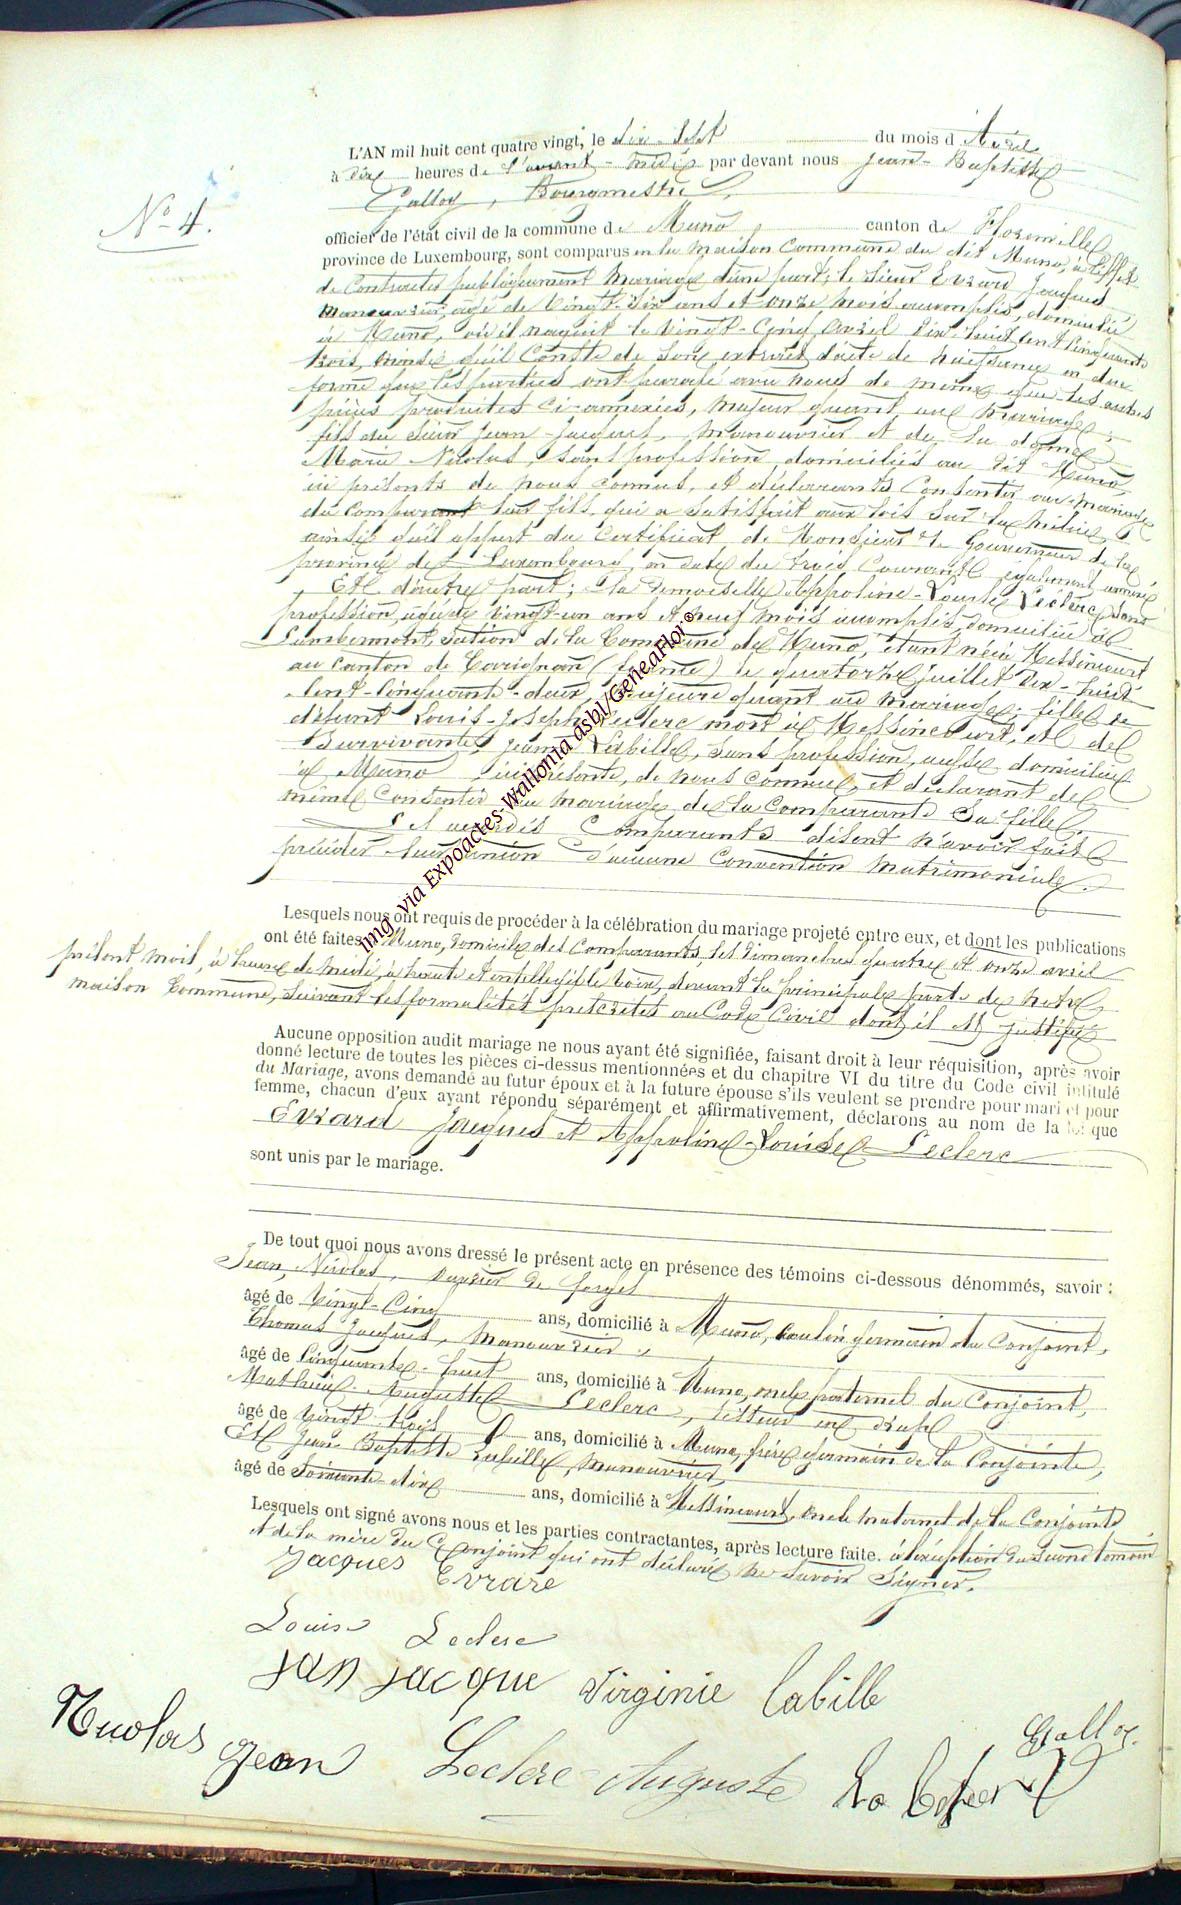 N° 4.
L'AN mil huit cent quatre vingt, le dix-sept du mois d'Avril
à dix heures de l'avant-midi par devant nous Jean-Baptiste
Galloy, Bourgmestre,
officier de l'état civil de la commune de Muno canton de Florenville
province de Luxembourg, sont comparus en la maison Commune du dit Muno, à l'effet
de Contracter publiquement mariage d'une part; le Sieur Evrard Jacques
manouvrier, agé de vingt-six ans et onze mois accomplis, domicilié
à Muno, où il naquit le vingt-cinq avril dix-huit cent cinquante
trois, comme qu'il Conste de son extrait d'acte de naissance en due
forme que les parties ont paraphé avec nous de même que les autres
pièces produites ci-annexées, majeur quant au mariage;
fils du Sieur Jean-Jacques, manouvrier et de la dame
Marie Nicolas, sans profession, domiciliés au dit Muno,
ici présents de nous connus, et déclarants Consentir au mariage
du comparant leur fils, qui a satisfait aux lois sur la milice
ainsi qu'il appert du Certificat de Monsieur le Gouverneur de la
province de Luxembourg, en date du trois Courant également annexé.
Et d'autre part; la demoiselle Appoline-Louise Leclerc, sans
profession, agée de vingt-un ans et neuf mois accomplis, domiciliée à
Lambermont, section de la Commune de Muno, étant née à Messincourt
au Canton de Carignan (france) le quatorze juillet dix-huit
cent-cinquante-deux, majeure quant au mariage; fille de
défunt Louis-Joseph Leclerc mort à Messincourt, et de
Survivante Jeanne Labille, sans profession, aussi domiciliée
à Muno, ici présente, de nous connue, et déclarant de
même Consentir au mariage de la Comparante Sa fille.
Les Comparants disent n'avoir fait
précéder leur union d'aucune Convention matrimoniale.
Lesquels nous ont requis de procéder à la célébration du mariage projeté entre eux, et dont les publications
ont été faites à Muno, domicile des Comparants, les dimanches quatre et onze avril
présent mois, à heure de midi, à haute et intelligible voix, devant la principale porte de notre
maison Commune, suivant les formalités prescrites au Code Civil dont il est justifié
Aucune opposition audit mariage ne nous ayant été signifiée, faisant droit à leur réquisition, après avoir
donné lecture de toutes les pièces ci-dessus mentionnées et du chapitre VI du titre du Code civil intitulé
du Mariage, avons demandé au futur époux et à la future épouse s'ils veulent se prendre pour mari et pour
femme, chacun d'eux ayant répondu séparément et affirmativement, déclarons au nom de la loi que
Evrard Jacques et Appoline-Louise Leclerc
sont unis par le mariage.
De tout quoi nous avons dressé le présent acte en présence des témoins ci-dessous dénommés, savoir:
Jean Nicolas, ouvrier de forges
âgé de vingt-cinq ans, domicilié à Muno, cousin germain du Conjoint,
Thomas Jacques, manouvrier,
âgé de cinquante-huit ans, domicilié à Muno, oncle paternel du Conjoint,
Mathieu-Auguste Leclerc, tisseur en draps
âgé de vingt-trois ans, domicilié à Muno, frère germain de la Conjointe,
Et Jean Baptiste Labille, manouvrier,
âgé de soixante-dix ans, domicilié à Messincourt, oncle maternel de la Conjointe
Lesquels ont signé avons nous et les parties contractantes, après lecture faite. à l'exception du second témoin
et de la mère du Conjoint qui ont déclaré ne savoir Signer.
Jacques Evrare
Louise Leclerc
jan jacque Virginie labille
Nicolas Jean Leclerc Auguste Galloy
img via Expoactes-Wallonia asbl/GeneaFlor©